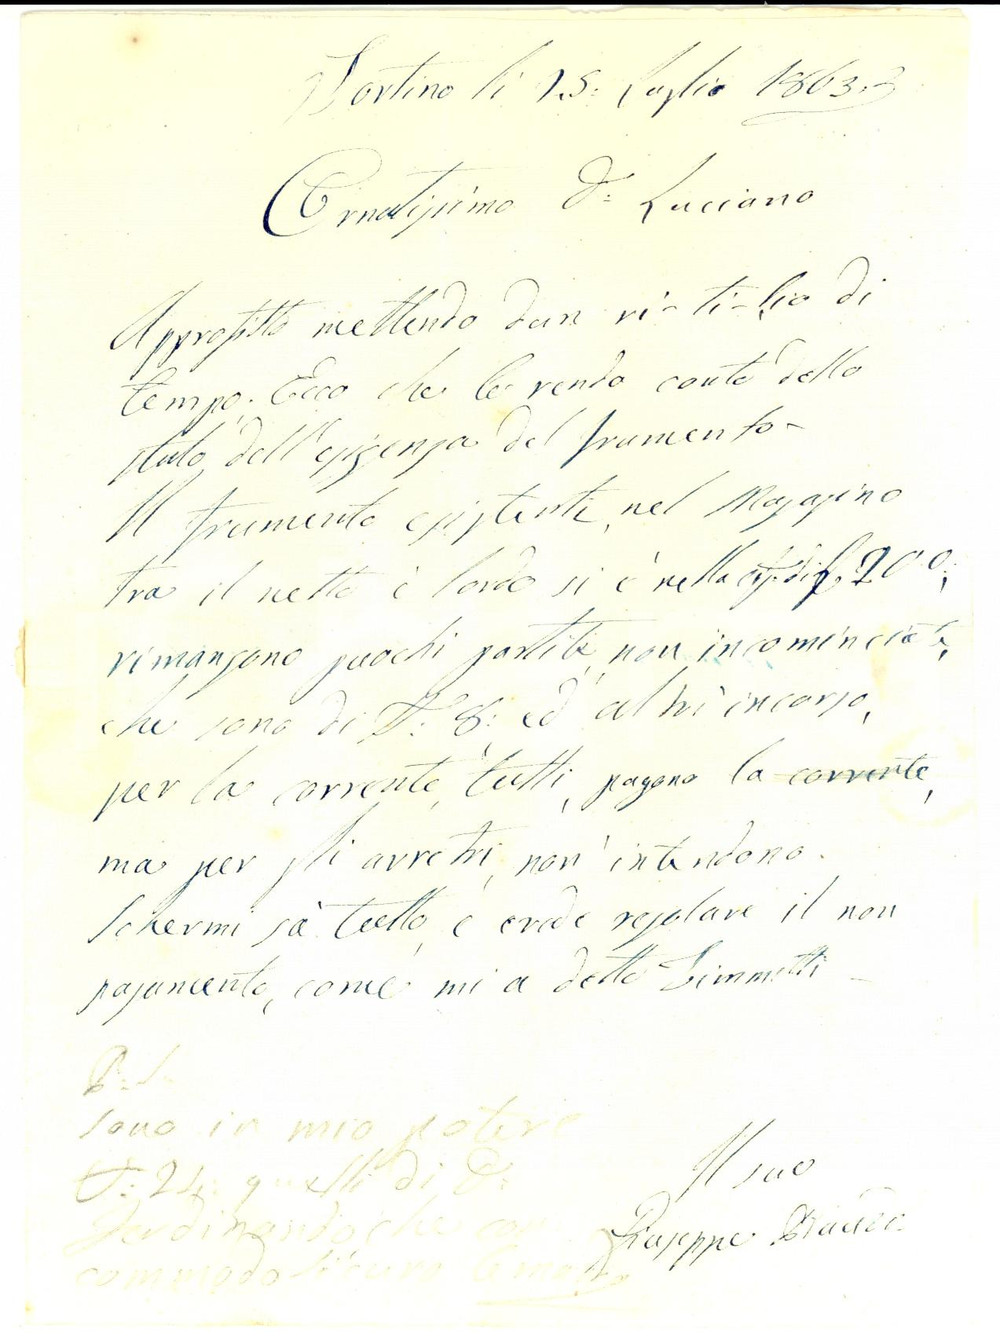 Sortino li 15: Luglio 1863.
Ornatissimo D: Luciano
Approfitto mettendo dun ri-ti-lio di
tempo. Ecco che le rendo conto dello
stato dell'esigenza del frumento-
Il frumento esistente, nel Magasino
tra il netto è lordo si è nella di 200:
rimangono puochi partite, non incominciate,
che sono di T. 8: ed altri incorso,
per la corrente, tutti, pagono la corrente,
ma per gli arretri, non intendono.
Schermi sà tutto, e crede regolare il non
pagamento, come mi a detto Zimmitti -
P. S.
Sono in mio potere
T: 24: quelli di D:
Ferdinando che con
commodo li
Il suo
Giuseppe